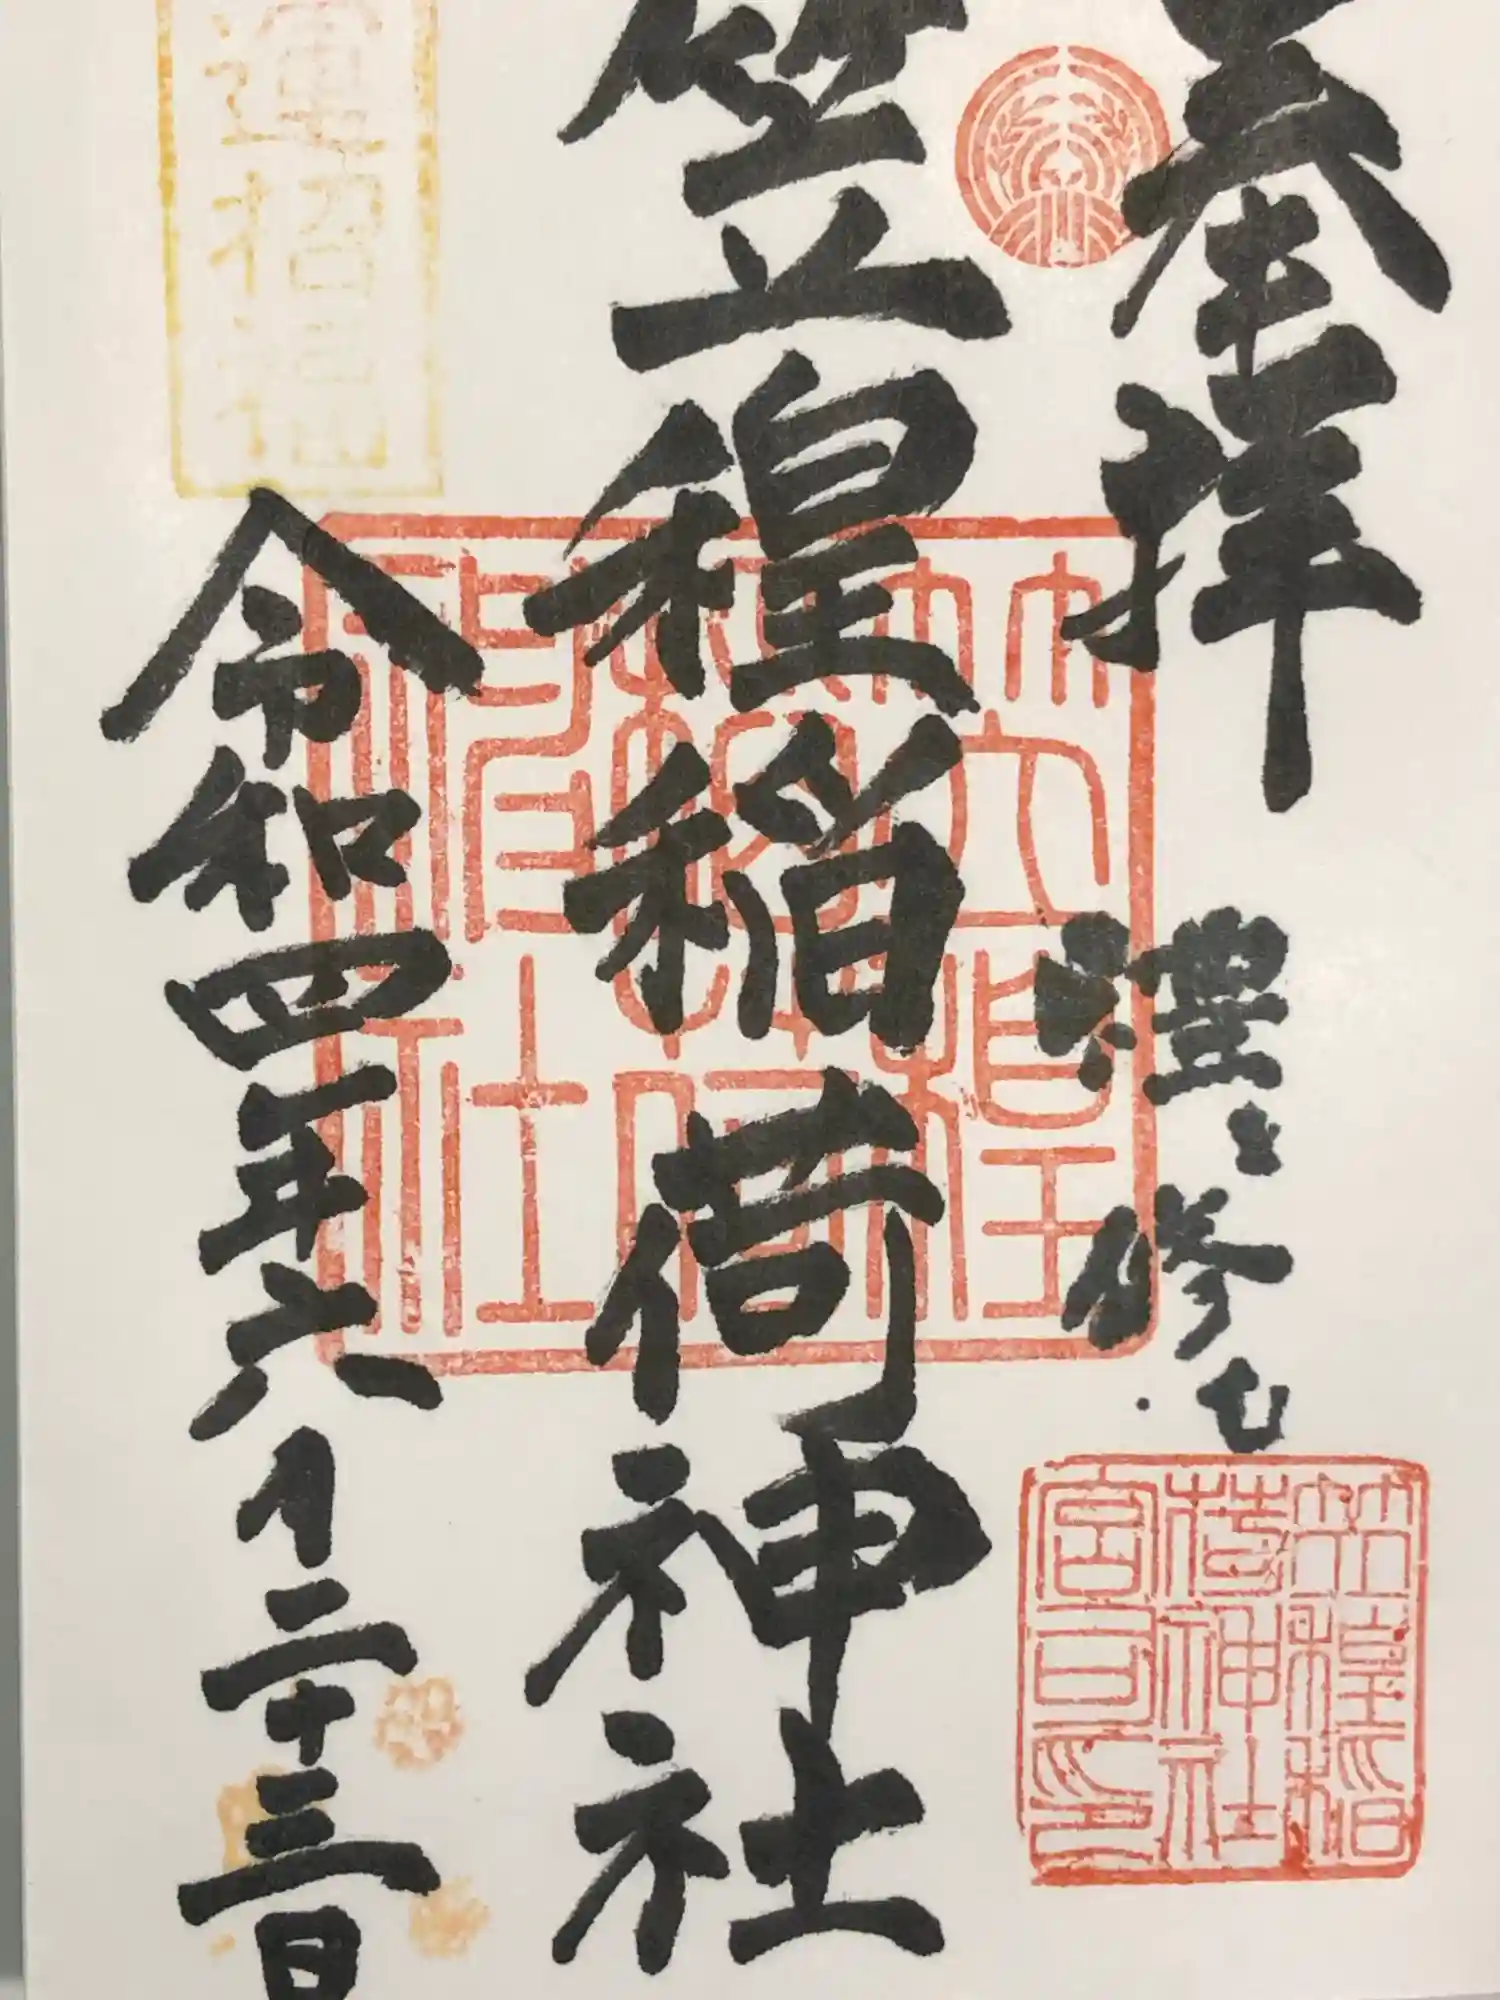 奉拝
禮を修む
笠䅣稲荷神社
令和四年六月二十三日
笠䅣稲荷神社
笠䅣稲荷神社宮司印